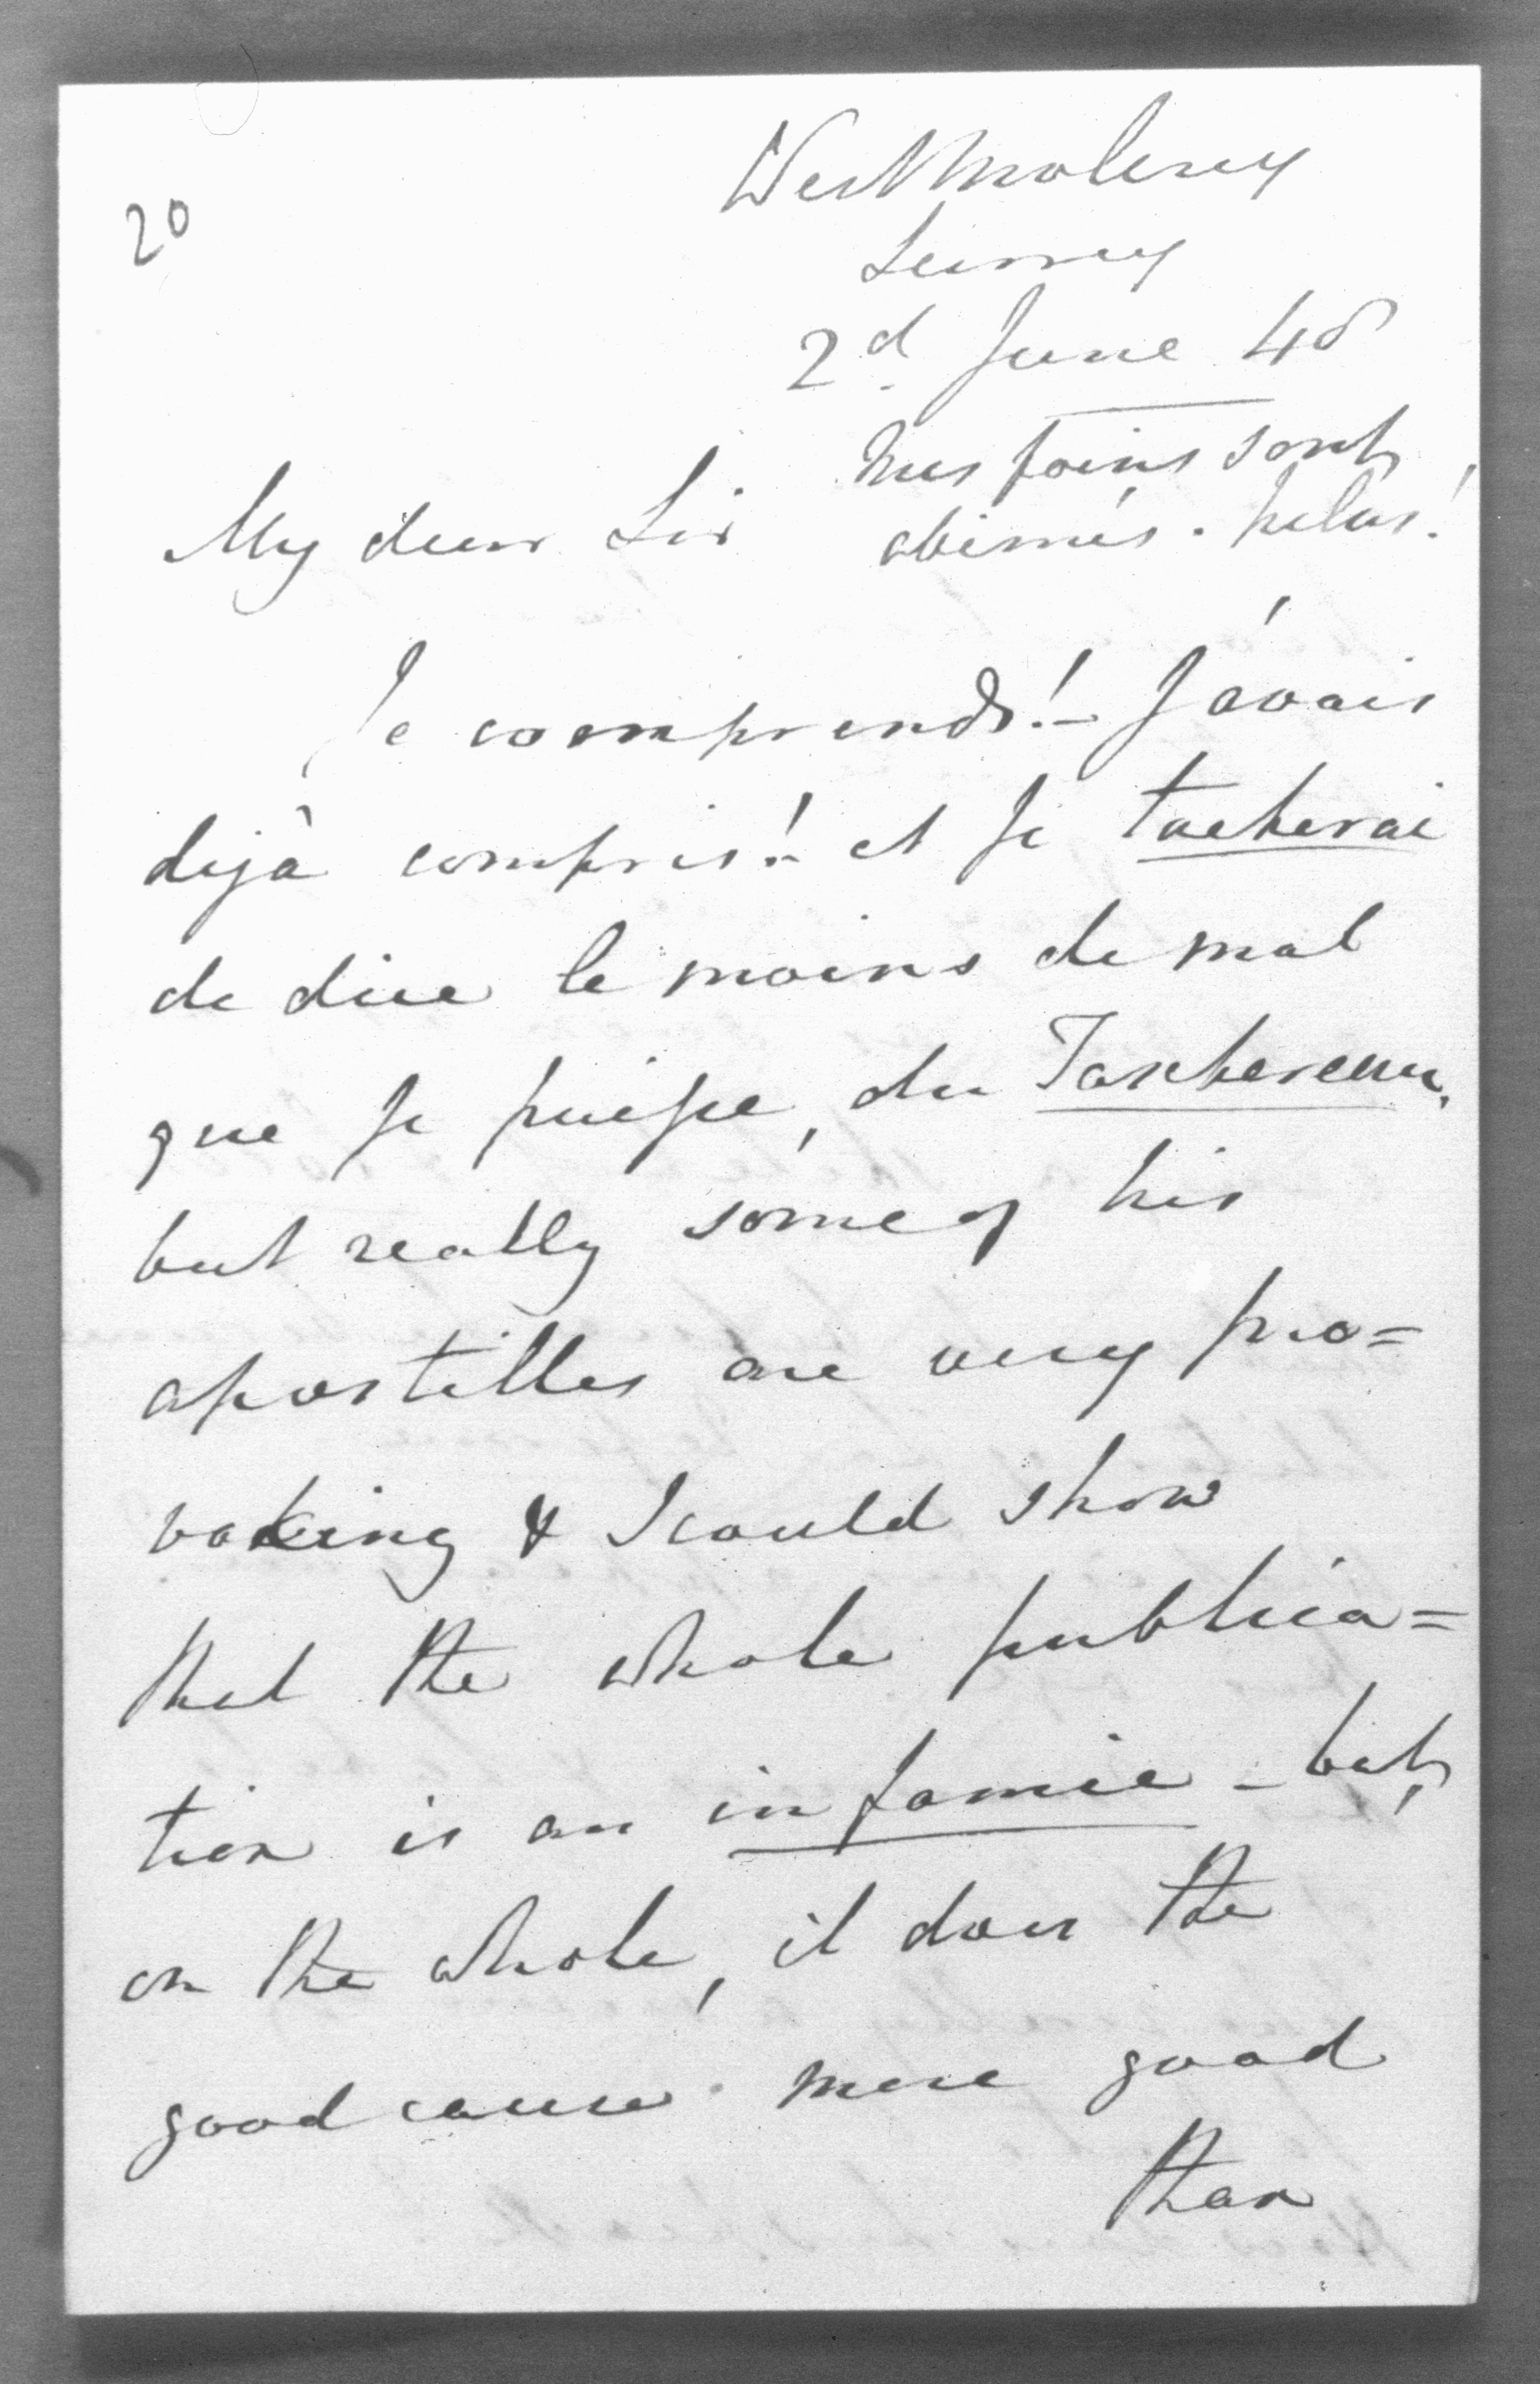 20
West Molesey
Surrey
2d June 48
Mes foins sont
abimés. helas!
My dear Sir
Je comprends! - J'avais
dejà compris! - et Je tacherai
de dire le moins de mal
que Je puisse, du Taschereau,
but really some of his
apostilles are very pro=
voking & I could show
that the whole publica=
tion is an infamie - but,
on the whole, it does the
good cause more good
than